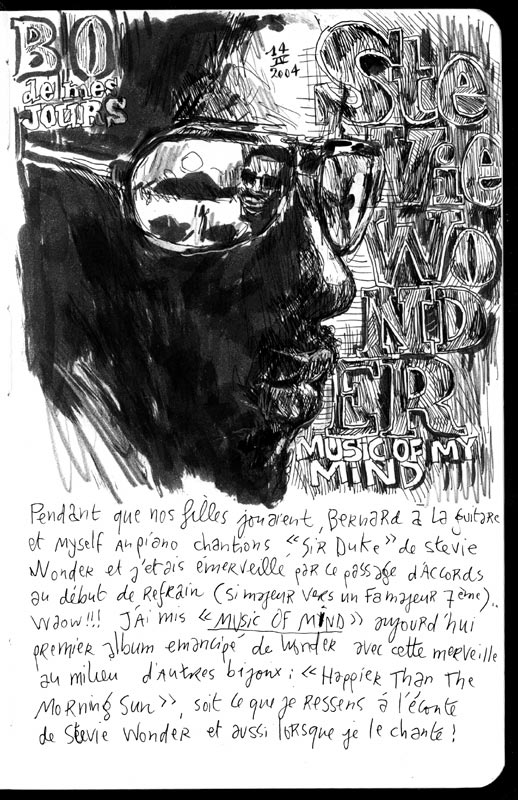 BO
de mes
JOURS
14
IV
2004
Ste
Vie
WO
ND
ER
MUSIC OF MY
MIND
Pendant que nos filles jouaient, Bernard à la guitare
et myself au piano chantions « Sir Duke » de Stevie
Wonder et j'étais émerveillé par ce passage d'accords
au début de refrain (si majeur vers un Fa majeur 7ème)..
Waow!!! J'ai mis « MUSIC OF MIND » aujourd'hui
premier album émancipé de Wonder avec cette merveille
au milieu d'autres bijoux : « Happier Than The
Morning Sun », soit ce que je ressens à l'écoute
de Stevie Wonder et aussi lorsque je le chante !